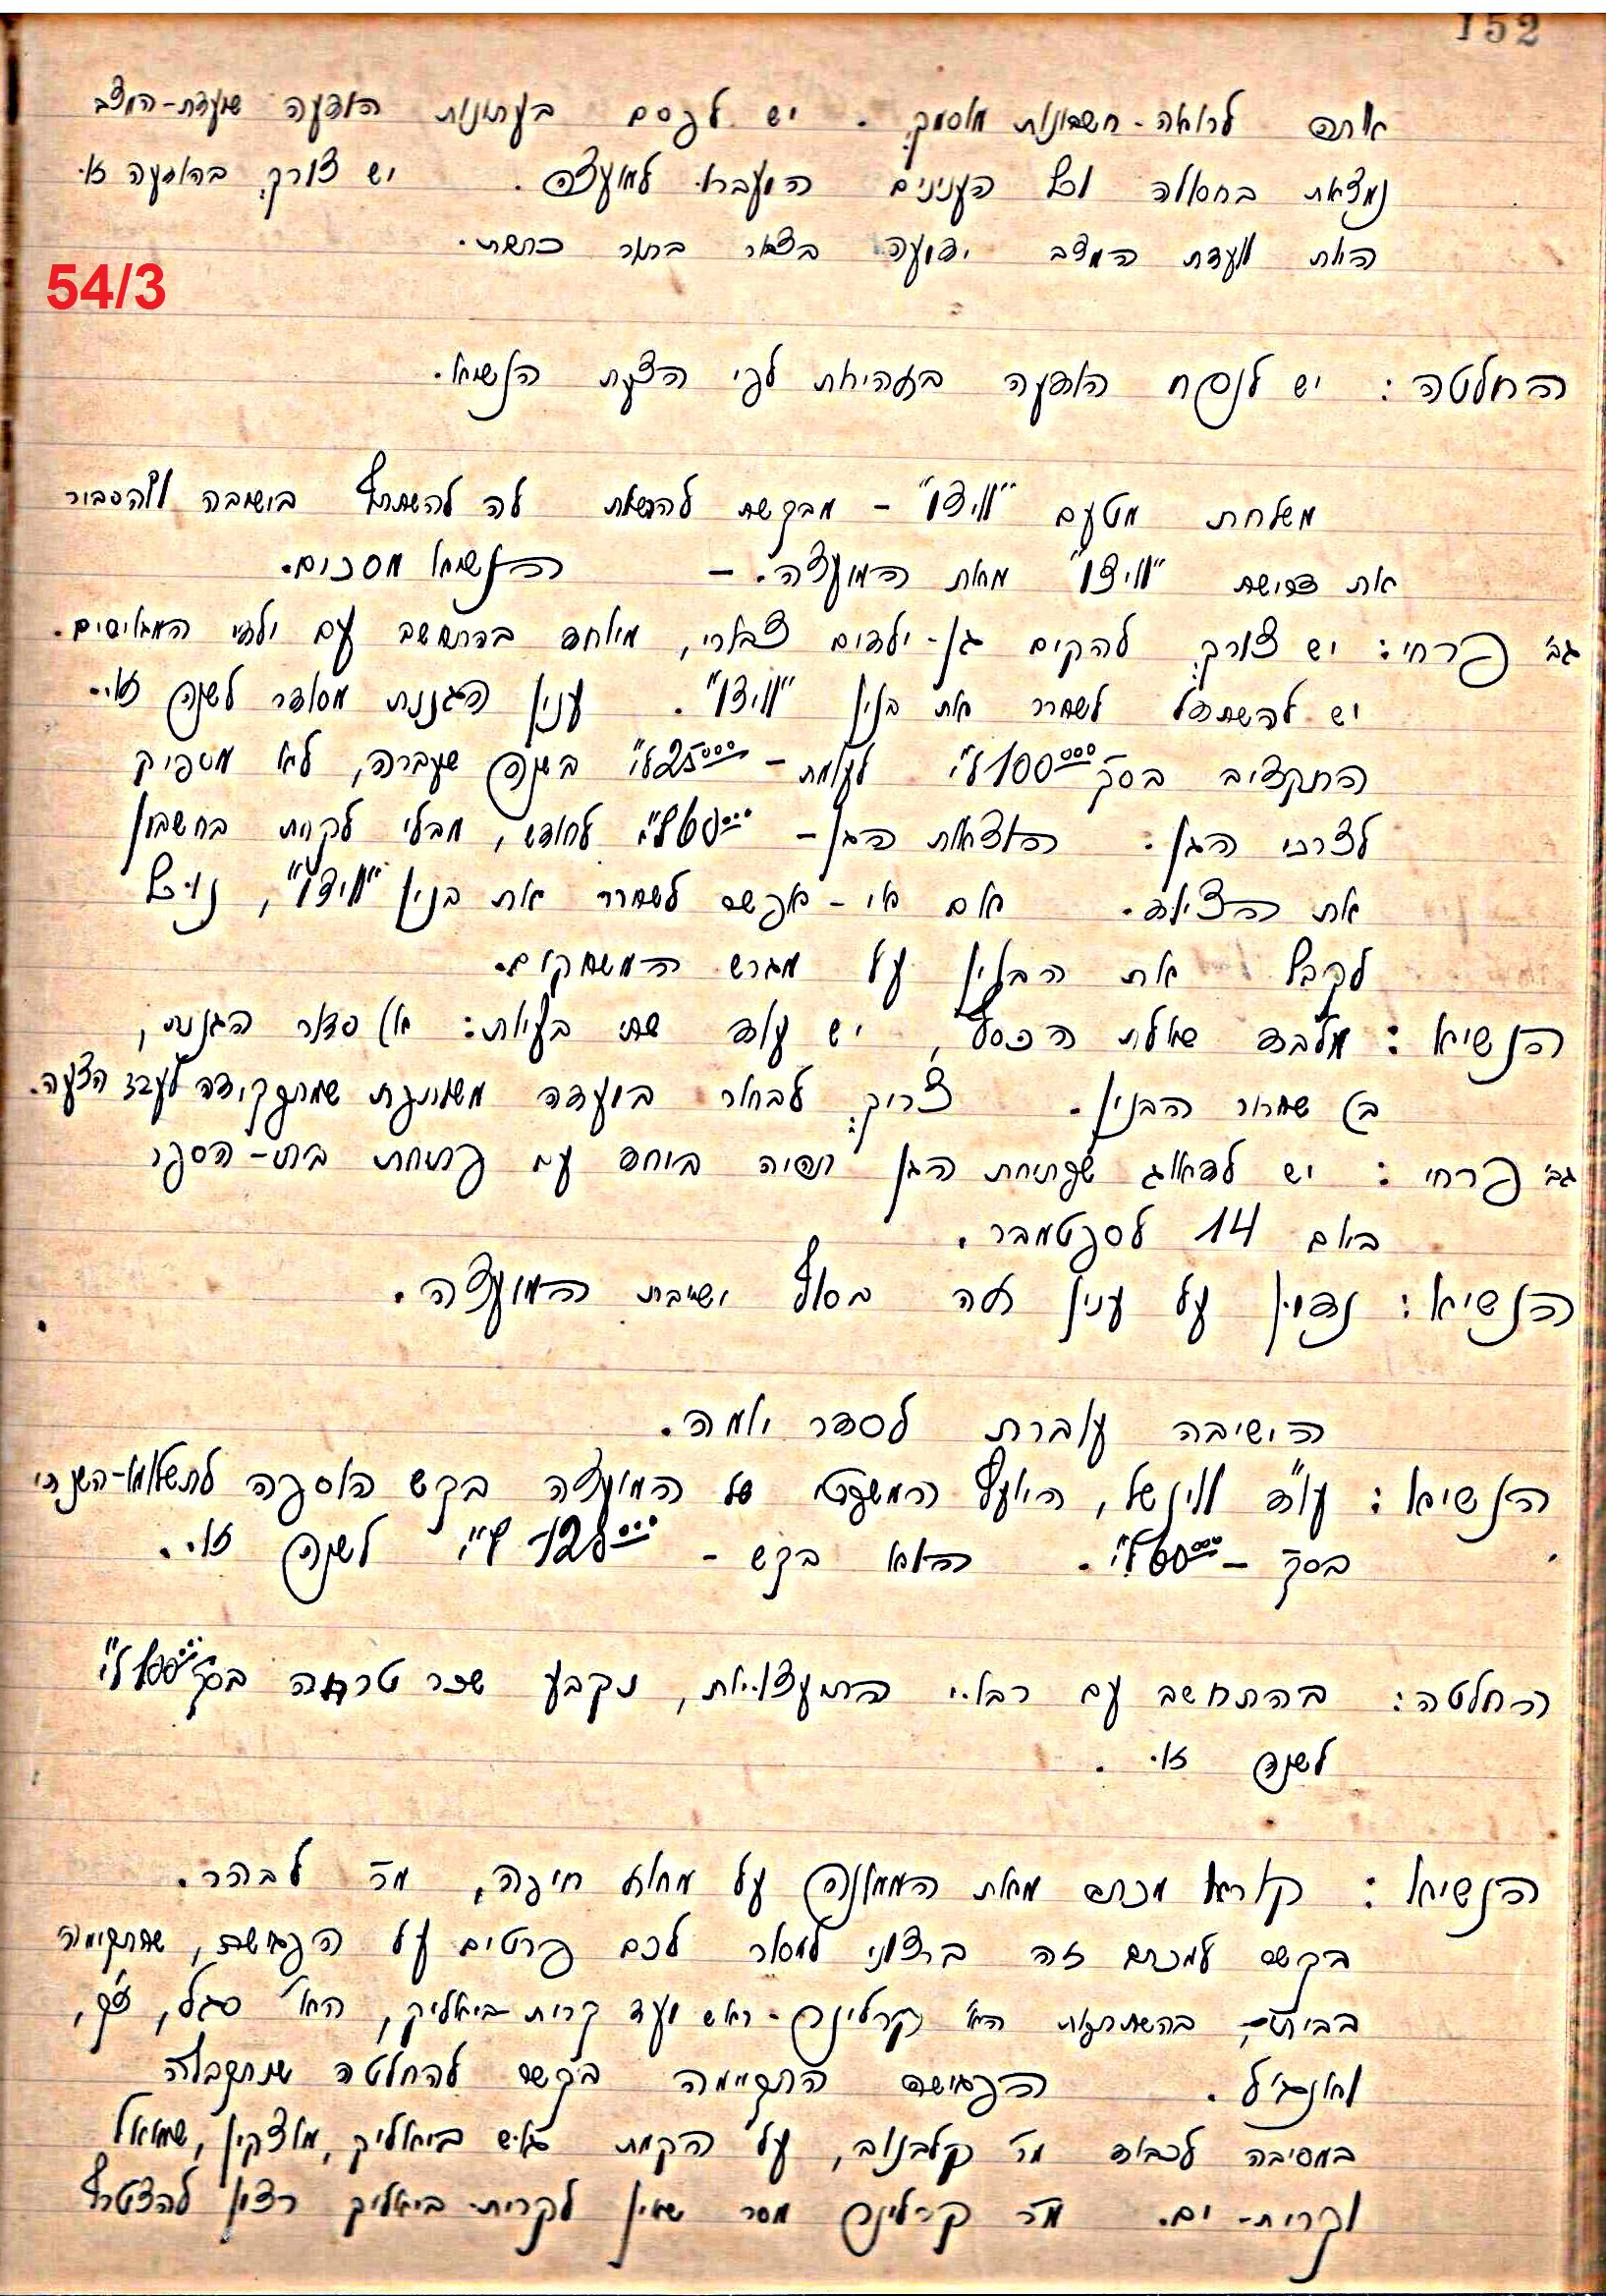 152
אותם לרואה-חשבונות מוסמך. יש לפרסם בעתונות הודעה שועדת-המצב
נמצאת בחסולה וכל הענינים הועברו למועצה. יש צורך בהודעה זו.
היות וועדת המצב ידועה בצבור בתור כזאת.
54/3
החלטה: יש לנסח הודעה בזהירות לפי הצעת הנשיא.
משלחת מטעם "וויצו" - מבקשת להרשות לה להשתתף בישיבה ולהסביר
את דרישת "וויצו" מאת המועצה. - הנשיא מסכים.
גב' פרחי: יש צורך להקים גן-ילדים צבורי, מיוחד בהתחשב עם ילדי המגויסים.
יש להשתדל לשחרר את בנין "וויצו". ענין הגננת מסודר לשנה זו.
התקציב בסך 100 לא"י לעומת - 25 לא"י בשנה שעברה, לא מספיק
לצרכי הגן: הוצאות הגן - 60 לא"י לחודש, מבלי לקחת בחשבון
את הציוד. אם אי-אפשר לשחרר את בנין "וויצו", נוכל
לקבל את הבנין על מגרש המשחקים.
הנשיא: מלבד שאלת הכסף, יש עוד שתי בעיות: א) סדור הגננת,
ב) שחרור הבנין. צריך לבחור בועדה משותפת שמתפקידה לעבד הצעה.
גב' פרחי: יש לדאוג שפתיחת הגן תהיה ביחד עם פתיחת בתי-הספר
ביום 14 לספטמבר.
הנשיא: נדון על ענין זה בסוף ישיבת המועצה.
הישיבה עוברת לסדר יומה.
הנשיא: עו"ד ווינשל, היועץ המשפטי של המועצה בקש הוספה לתשלומו-השנתי
בסך - 60 לא"י. הוא בקש - 120 לא"י לשנה זו.
החלטה: בהתחשב עם רבוי התיעצויות, נקבע שכר טרחה בסך 100 לא"י
לשנה זו.
הנשיא: קורא מכתב מאת הממונה על מחוז חיפה, מר לבהר.
בקשר למכתב זה ברצוני למסור לכם פרטים על הפגישה, שהתקימה
בביתי, בהשתתפות ה"א קרלינר - ראש ועד קרית ביאליק, ה"א סגל,
ואנג'יל. הפגישה התקיימה בקשר להחלטה שנתקבלה
במסיבה לכבוד מר קלבנוב, על הקמת גוש ביאליק, מוצקין, שמואל
וקרית-ים. מר קרלינר מסר שאין לקרית-ביאליק רצון להצטרף